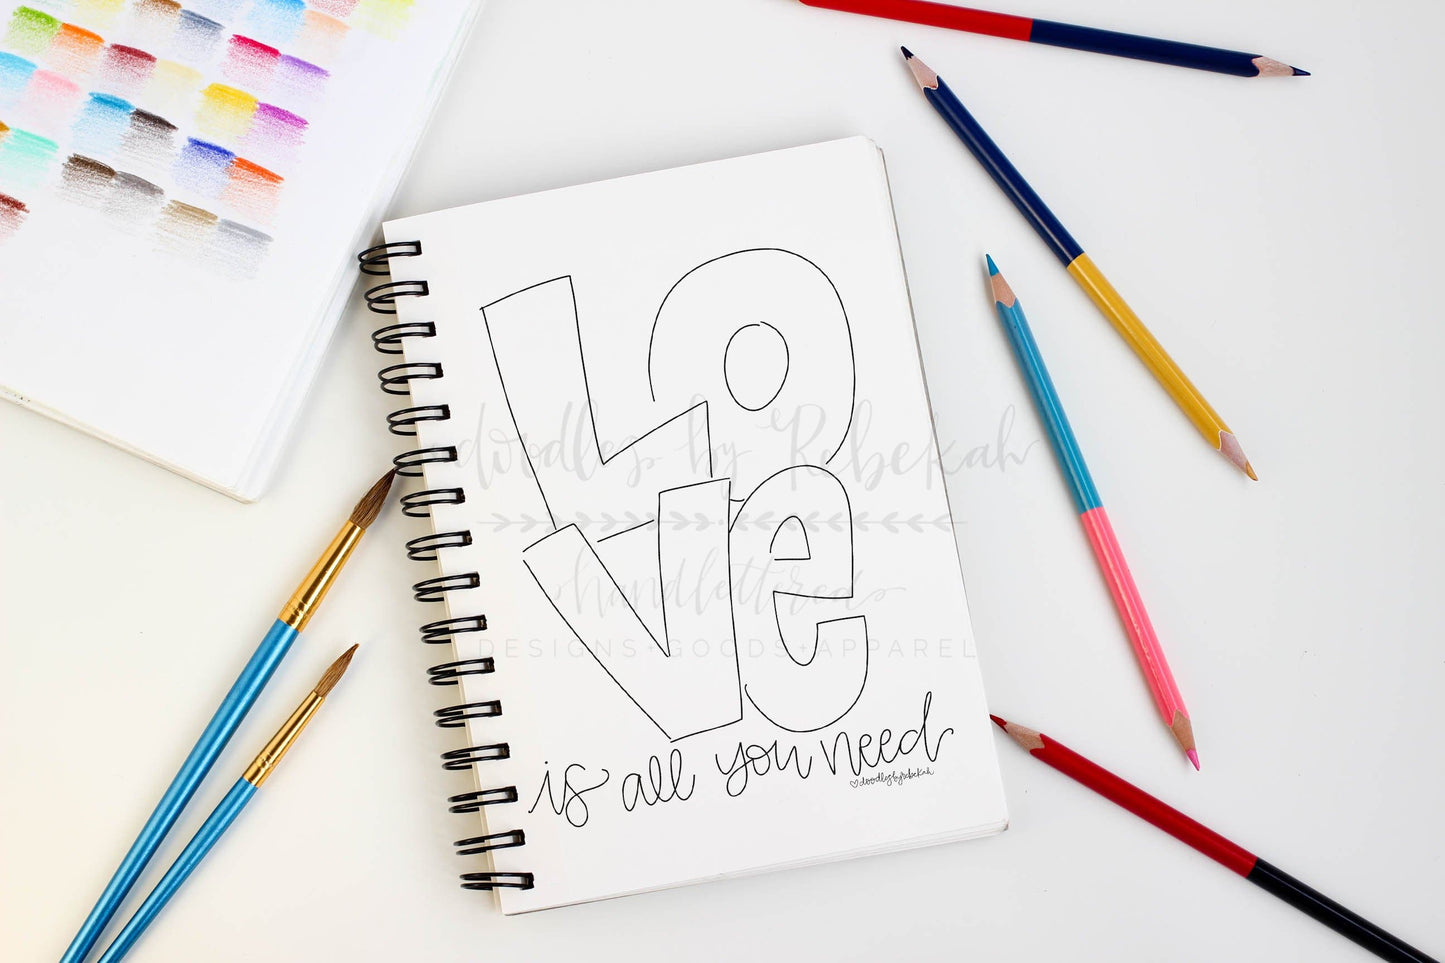 LOVe
is all you need
♡doodlesbyrebekah
doodles by Rebekah
handlettered
DESIGNS+GOODS+APPAREL